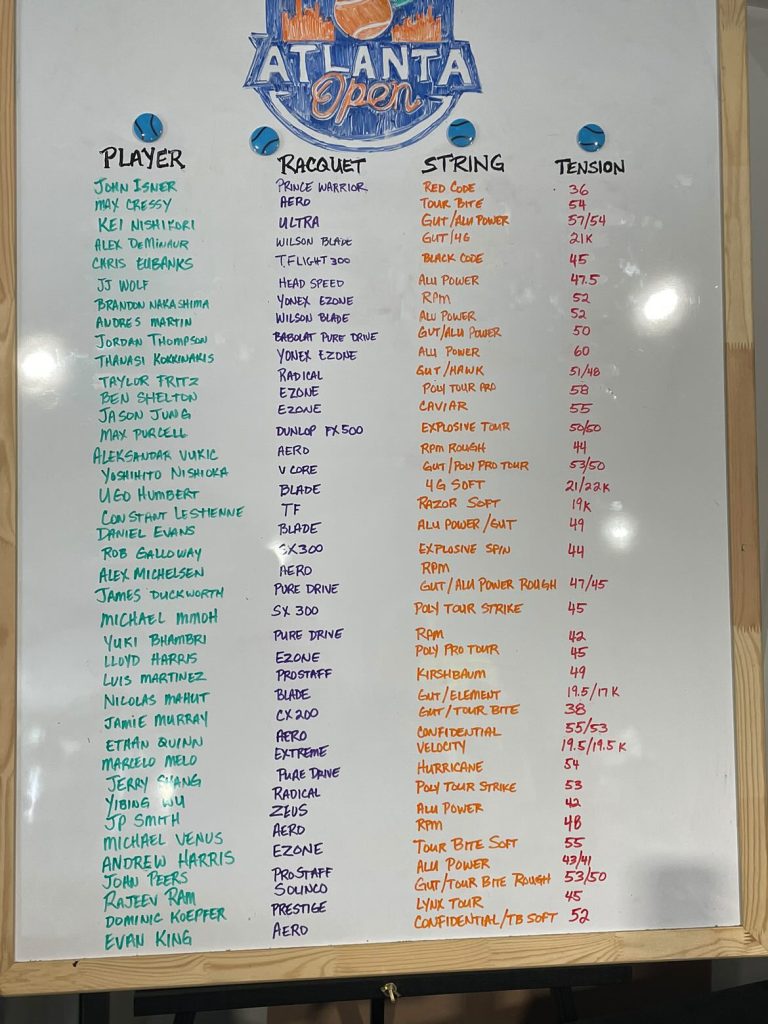 ATLANTA
Open
PLAYER RACQUET STRING TENSION
JOHN ISNER PRINCE WARRIOR RED CODE 36
MAX CRESSY AERO TOUR BITE 54
KEI NISHIKORI ULTRA GUT/ALU POWER 57/54
ALEX DEMINAUR WILSON BLADE GUT/4G 21K
CHRIS EUBANKS TFLIGHT 300 BLACK CODE 45
JJ WOLF HEAD SPEED ALU POWER 47.5
BRANDON NAKASHIMA YONEX EZONE RPM 52
ANDRES MARTIN WILSON BLADE ALU POWER 52
JORDAN THOMPSON BABOLAT PURE DRIVE GUT/ALU POWER 50
THANASI KOKKINAKIS YONEX EZONE ALU POWER 60
TAYLOR FRITZ RADICAL GUT/HAWK 51/48
BEN SHELTON EZONE POLY TOUR PRO 58
JASON JUNG EZONE CAVIAR 55
MAX PURCELL DUNLOP FX500 EXPLOSIVE TOUR 50/50
ALEKSANDAR VUKIC AERO RPM ROUGH 44
YOSHIHITO NISHIOKA VCORE GUT/POLY PRO TOUR 53/50
UGO HUMBERT BLADE 4G SOFT 21/22K
CONSTANT LESTIENNE TF RAZOR SOFT 19K
DANIEL EVANS BLADE ALU POWER/GUT 49
ROB GALLOWAY SX300 EXPLOSIVE SPIN 44
ALEX MICHELSEN AERO RPM
JAMES DUCKWORTH PURE DRIVE GUT/ALU POWER ROUGH 47/45
MICHAEL MMOH SX 300 POLY TOUR STRIKE 45
YUKI BHAMBRI PURE DRIVE RPM 42
LLOYD HARRIS EZONE POLY PRO TOUR 45
LUIS MARTINEZ PROSTAFF KIRSHBAUM 49
NICOLAS MAHUT BLADE GUT/ELEMENT 19.5/17K
JAMIE MURRAY CX200 GUT/TOUR BITE 38
ETHAN QUINN AERO CONFIDENTIAL 55/53
MARCELO MELO EXTREME VELOCITY 19.5/19.5K
JERRY SHANG PURE DRIVE HURRICANE 54
YIBING WU RADICAL POLY TOUR STRIKE 53
JP SMITH ZEUS ALU POWER 42
MICHAEL VENUS AERO RPM 48
ANDREW HARRIS EZONE TOUR BITE SOFT 55
JOHN PEERS PROSTAFF ALU POWER 43/41
RAJEEV RAM SOLINCO GUT/TOUR BITE ROUGH 53/50
DOMINIC KOEPFER PRESTIGE LYNX TOUR 45
EVAN KING AERO CONFIDENTIAL/TB SOFT 52